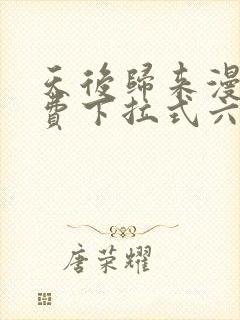 天後歸來漫
費下拉式六
唐荣耀